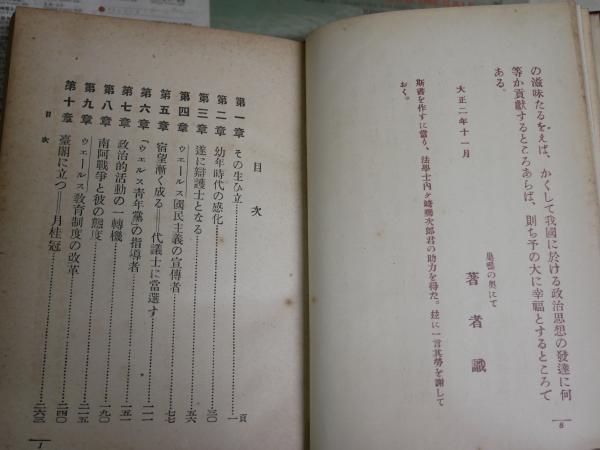 の滋味たるをえば、かくして我國に於ける政治思想の發達に何
等か貢獻するところあらば、則ち予の大に幸福とするところで
ある。
大正二年十一月
巣鴨の奥にて
著者識
斯書を作すに當り、法學士内ケ崎勝次郎君の助力を得た。玆に一言其勞を謝して
おく。
8
目次
第一章 その生ひ立 一頁
第二章 幼年時代の感化 三〇
第三章 遂に辯護士となる 五六
第四章 ウェールス國民主義の宣傳者 七七
第五章 宿望漸く成る――代議士に當選す
第六章 「ウェルス青年黨」の指導者 一一一
第七章 政治的活動の一轉機 一五一
第八章 南阿戰爭と彼の態度 一九〇
第九章 ウェールス教育制度の改革 二一五
第十章 臺閣に立つ――月桂冠 二四〇
二六三
目次
1